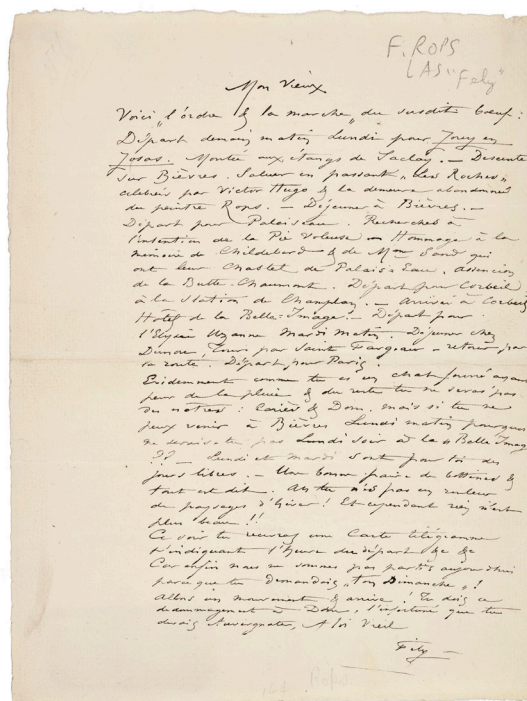 F. ROPS
LAS "Fély"
Mon Vieux
Voici „l'ordre & la marche" du susdit boeuf :
Départ demain matin Lundi pour Jouy en
Josas. Montée aux étangs de Saclay. — Descente
sur Bièvres. Saluer en passant „Les Roches"
célébrés par Victor Hugo & la demeure abandonnée
du peintre Rops. — Déjeuner à Bièvres. —
Départ pour Palaiseau. Recherches à
l'intention de la Pie Voleuse — Hommage à la
mémoire de Childebert & de Mme Sand qui
ont leur Chalet de Palais-Eau.
de la Butte-Chaumont. Départ pour Corbeil
à la Station de Champlan. — Arrivée à Corbeil
Hotel de la Belle-Image. — Départ pour
l'Elysée Uzanne Mardi matin. Déjeuner chez
par Saint Fargeau — retour par
la route. Départ pour Paris.
Evidemment comme tu es un chat fourré ayant
peur de la pluie & du reste tu ne seras pas
des nôtres : & Dom. mais si tu ne
peux venir à Bièvres Lundi matin pourquoi
ne pas Lundi soir à la „Belle Image
?? — Lundi et mardi sont pour toi des
jours libres. — Une bonne paire de bottines &
tout est dit. Ah tu n'es pas un
de paysages d'hiver ! Et cependant rien n'est
plus beau !!
Ce soir tu recevras une Carte télégramme
t'indiquant l'heure du départ &c &c
Car enfin nous ne sommes pas partis aujourd'hui
parce que tu demandais „ton Dimanche" !
Allons un mouvement & arrive ! Tu dois ce
dédommagement à Dom, que tu
devais A toi Vieil
Fély —
Rops